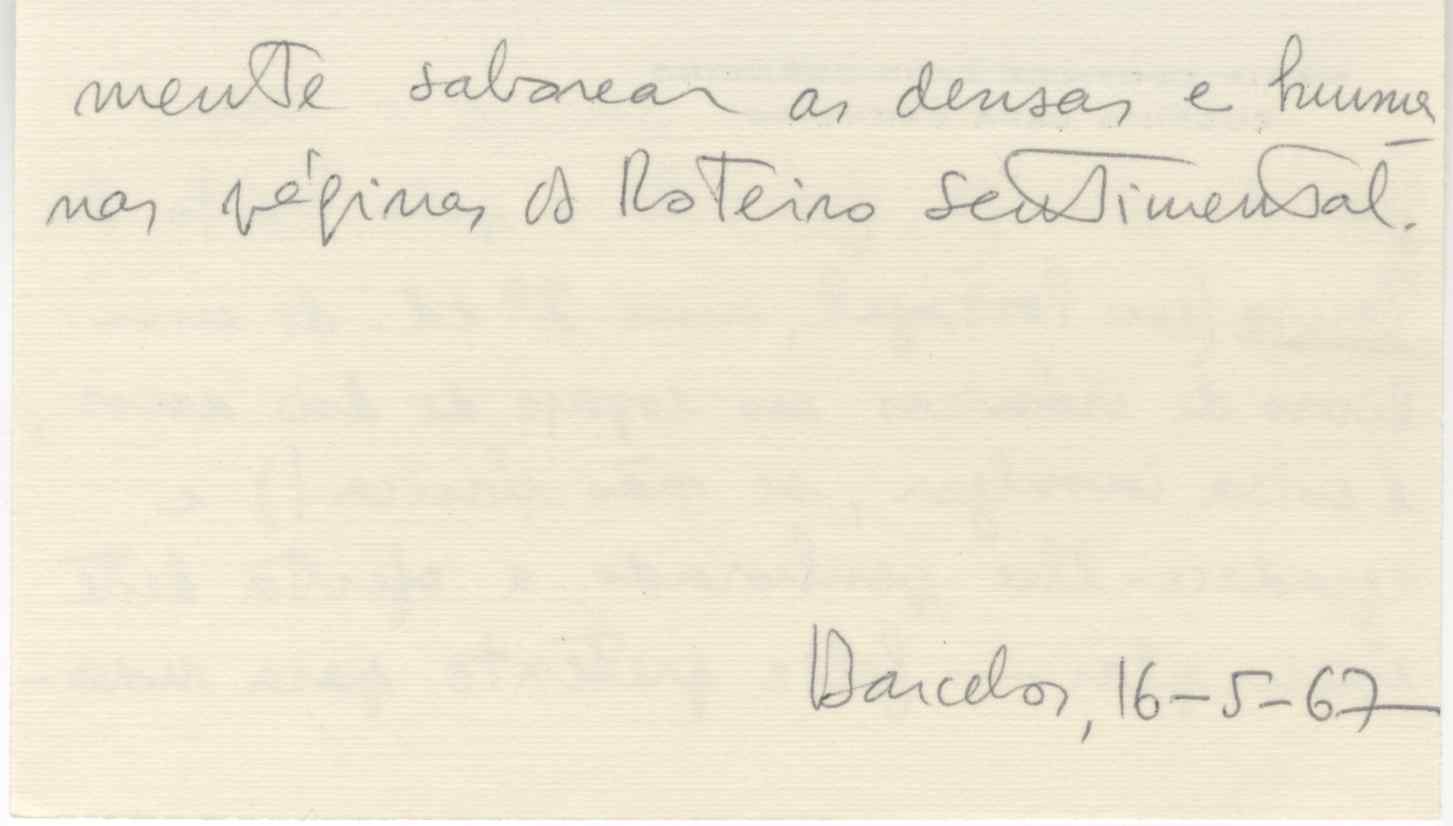 mente saborear as densas e huma-
nas páginas do Roteiro sentimental.
Barcelos, 16-5-67